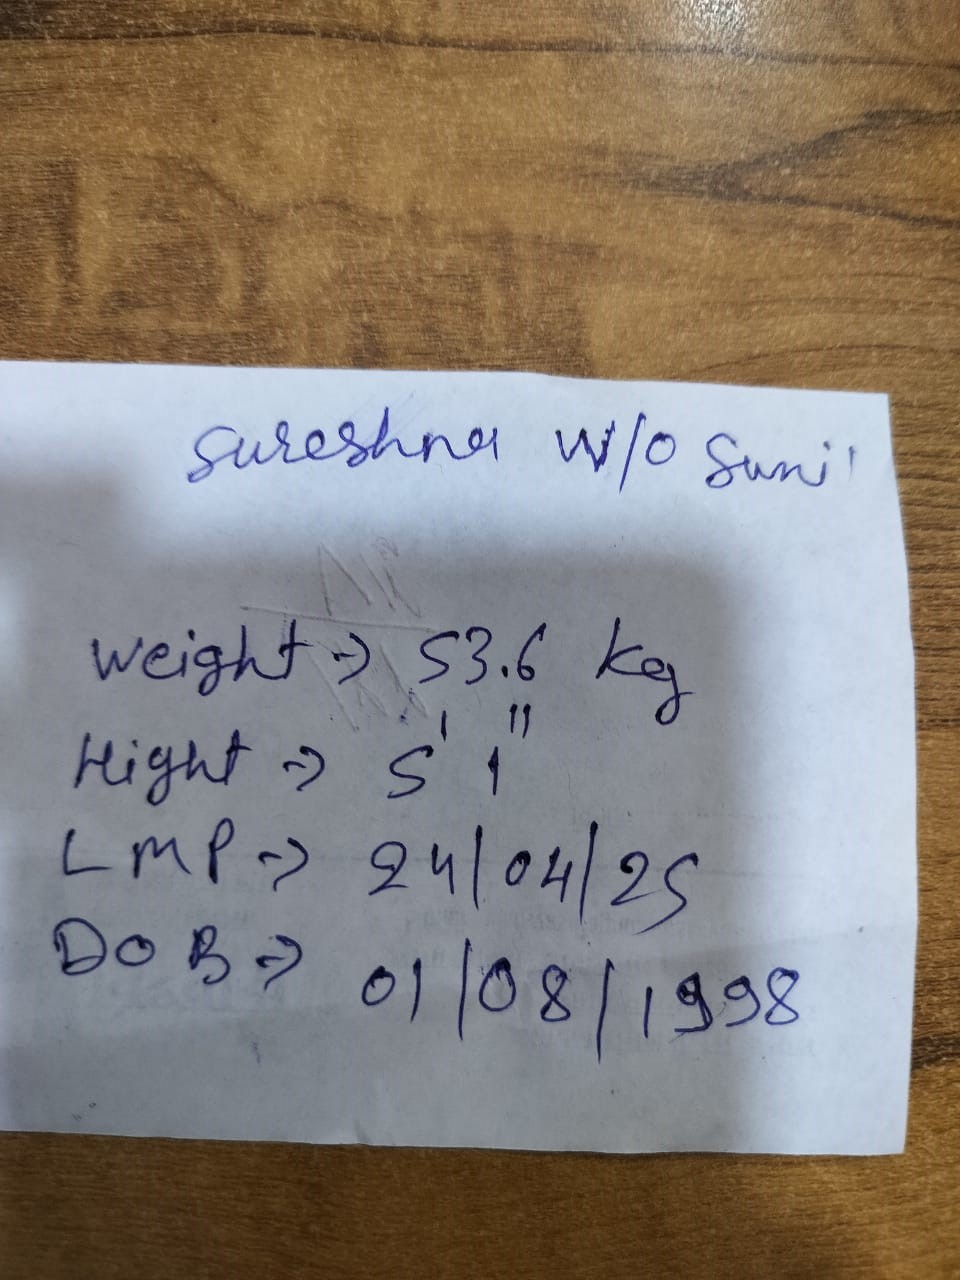 Sureshna W/O Sunil
Weight → 53.6 kg
Hight → 5' 1"
LMP → 24/04/25
DOB → 01/08/1998